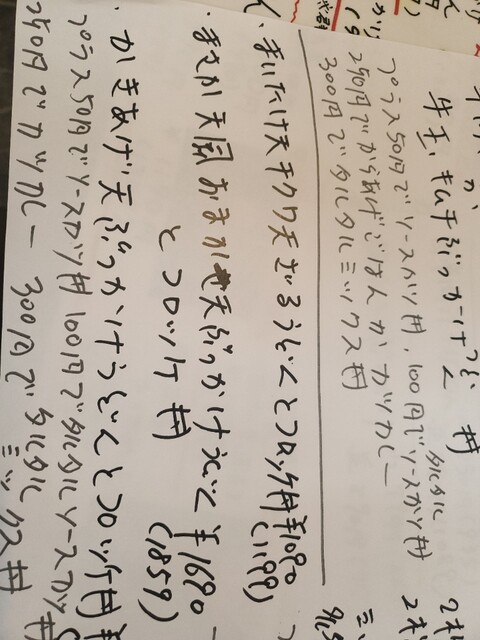 牛玉、キムチぶっかけうどん 丼
プラス50円でソースカツ丼、100円でタルタルソースカツ丼
250円でからあげごはんかカツカレー
300円でタルタルミックス丼
、まいたけ天チクワ天ざるうどんとコロッケ丼¥1090
(1199)
・まさか天国おまかせ天ぶっかけうどん ¥1690
とコロッケ丼 (1859)
・かきあげ天ぶっかけうどんとコロッケ丼¥
プラス50円でソースカツ丼 100円でタルタルソースカツ丼
250円でカツカレー 300円でタルタル
ミックス丼